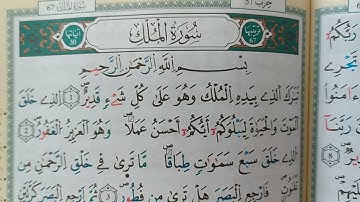 سُورَةُ الْمُلْكِ
آياتها 30
ترتيبها 67
بِسْمِ اللَّهِ الرَّحْمَٰنِ الرَّحِيمِ
تَبَٰرَكَ الَّذِي بِيَدِهِ الْمُلْكُ وَهُوَ عَلَىٰ كُلِّ شَيْءٍ قَدِيرٌ ١ الَّذِي خَلَقَ
الْمَوْتَ وَالْحَيَوٰةَ لِيَبْلُوَكُمْ أَيُّكُمْ أَحْسَنُ عَمَلًا وَهُوَ الْعَزِيزُ الْغَفُورُ ٢
الَّذِي خَلَقَ سَبْعَ سَمَٰوَٰتٍ طِبَاقًا مَّا تَرَىٰ فِي خَلْقِ الرَّحْمَٰنِ مِن
فَارْجِعِ الْبَصَرَ هَلْ تَرَىٰ مِن فُطُورٍ ٣ ثُمَّ ارْجِعِ الْبَصَرَ كَرَّتَيْنِ